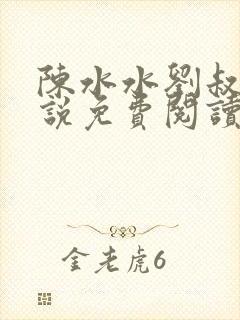 陳水水劉叔
說免費閱讀
金老虎6